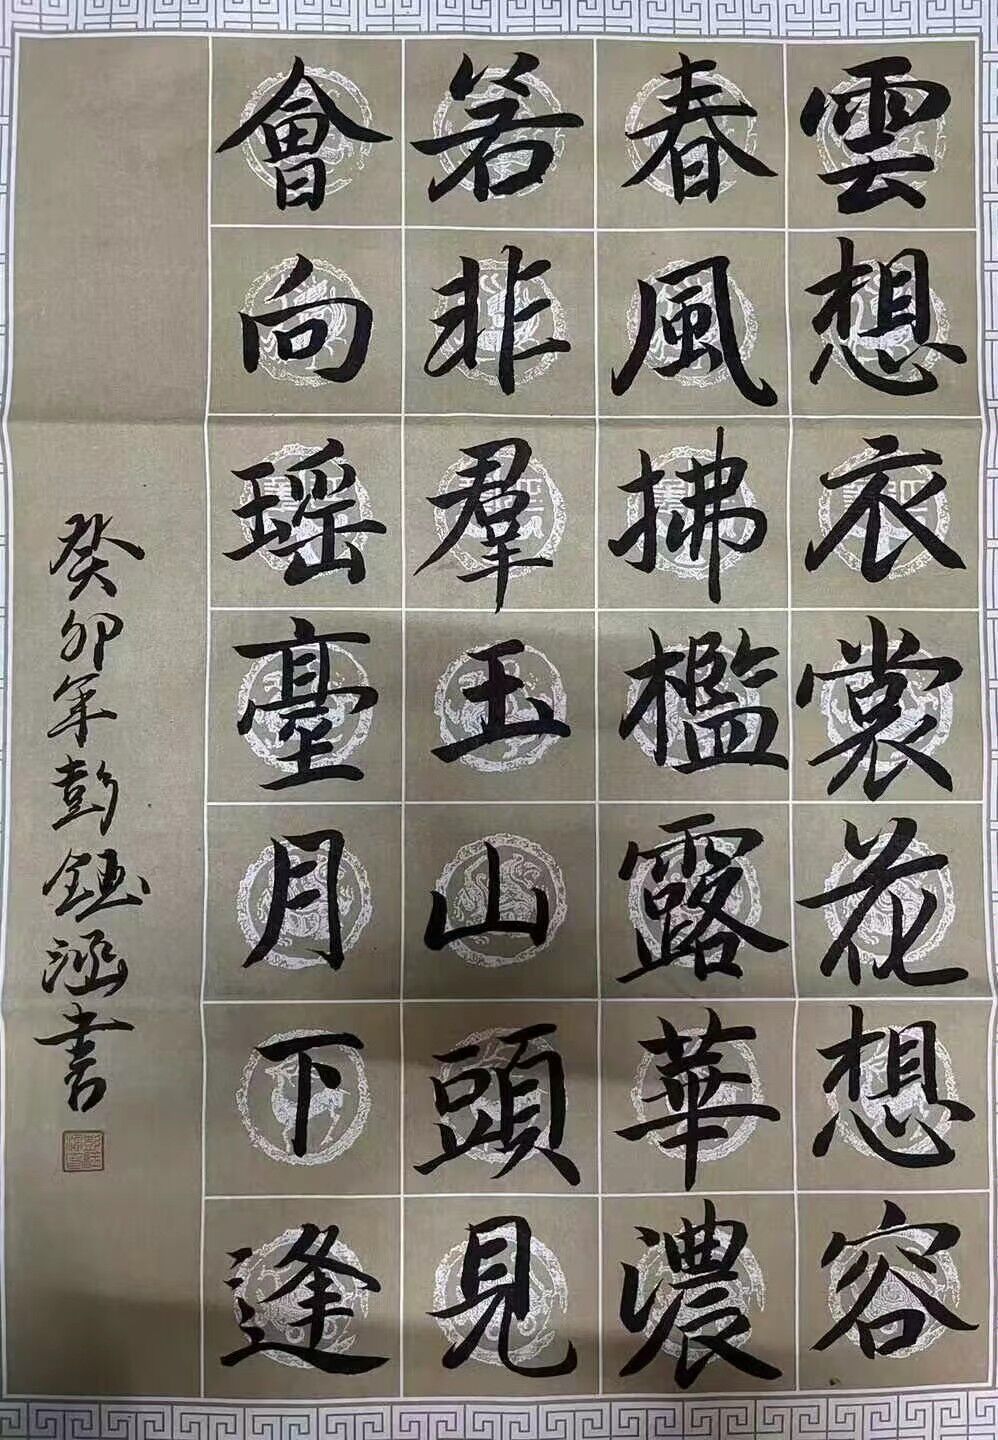 雲想衣裳花想容
春風拂檻露華濃
若非羣玉山頭見
會向瑤臺月下逢
癸卯年彭鈺涵書